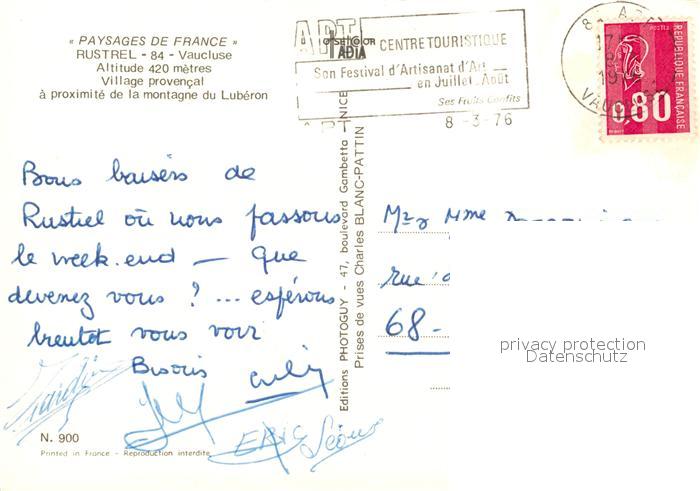 « PAYSAGES DE FRANCE »
RUSTREL - 84 - Vaucluse
Altitude 420 mètres
Village provençal
à proximité de la montagne du Lubéron
APT
CENTRE TOURISTIQUE
Son Festival d'Artisanat d'Art
en Juillet _ Août
Ses Fruits Confits
8 -3-76
84 APT
VAUCLUSE
POSTES
REPUBLIQUE FRANÇAISE
0,80
Bons baisers de
Rustrel où nous passons
le week.end — Que
devenez vous ? ... espérons
bientôt vous voir
Bisous
ERIC
N. 900
Printed in France - Reproduction interdite
Editions PHOTOGUY - 47, boulevard Gambetta - NICE
Prises de vues Charles BLANC-PATTIN
Mr & Mme
rue
68-
privacy protection
Datenschutz